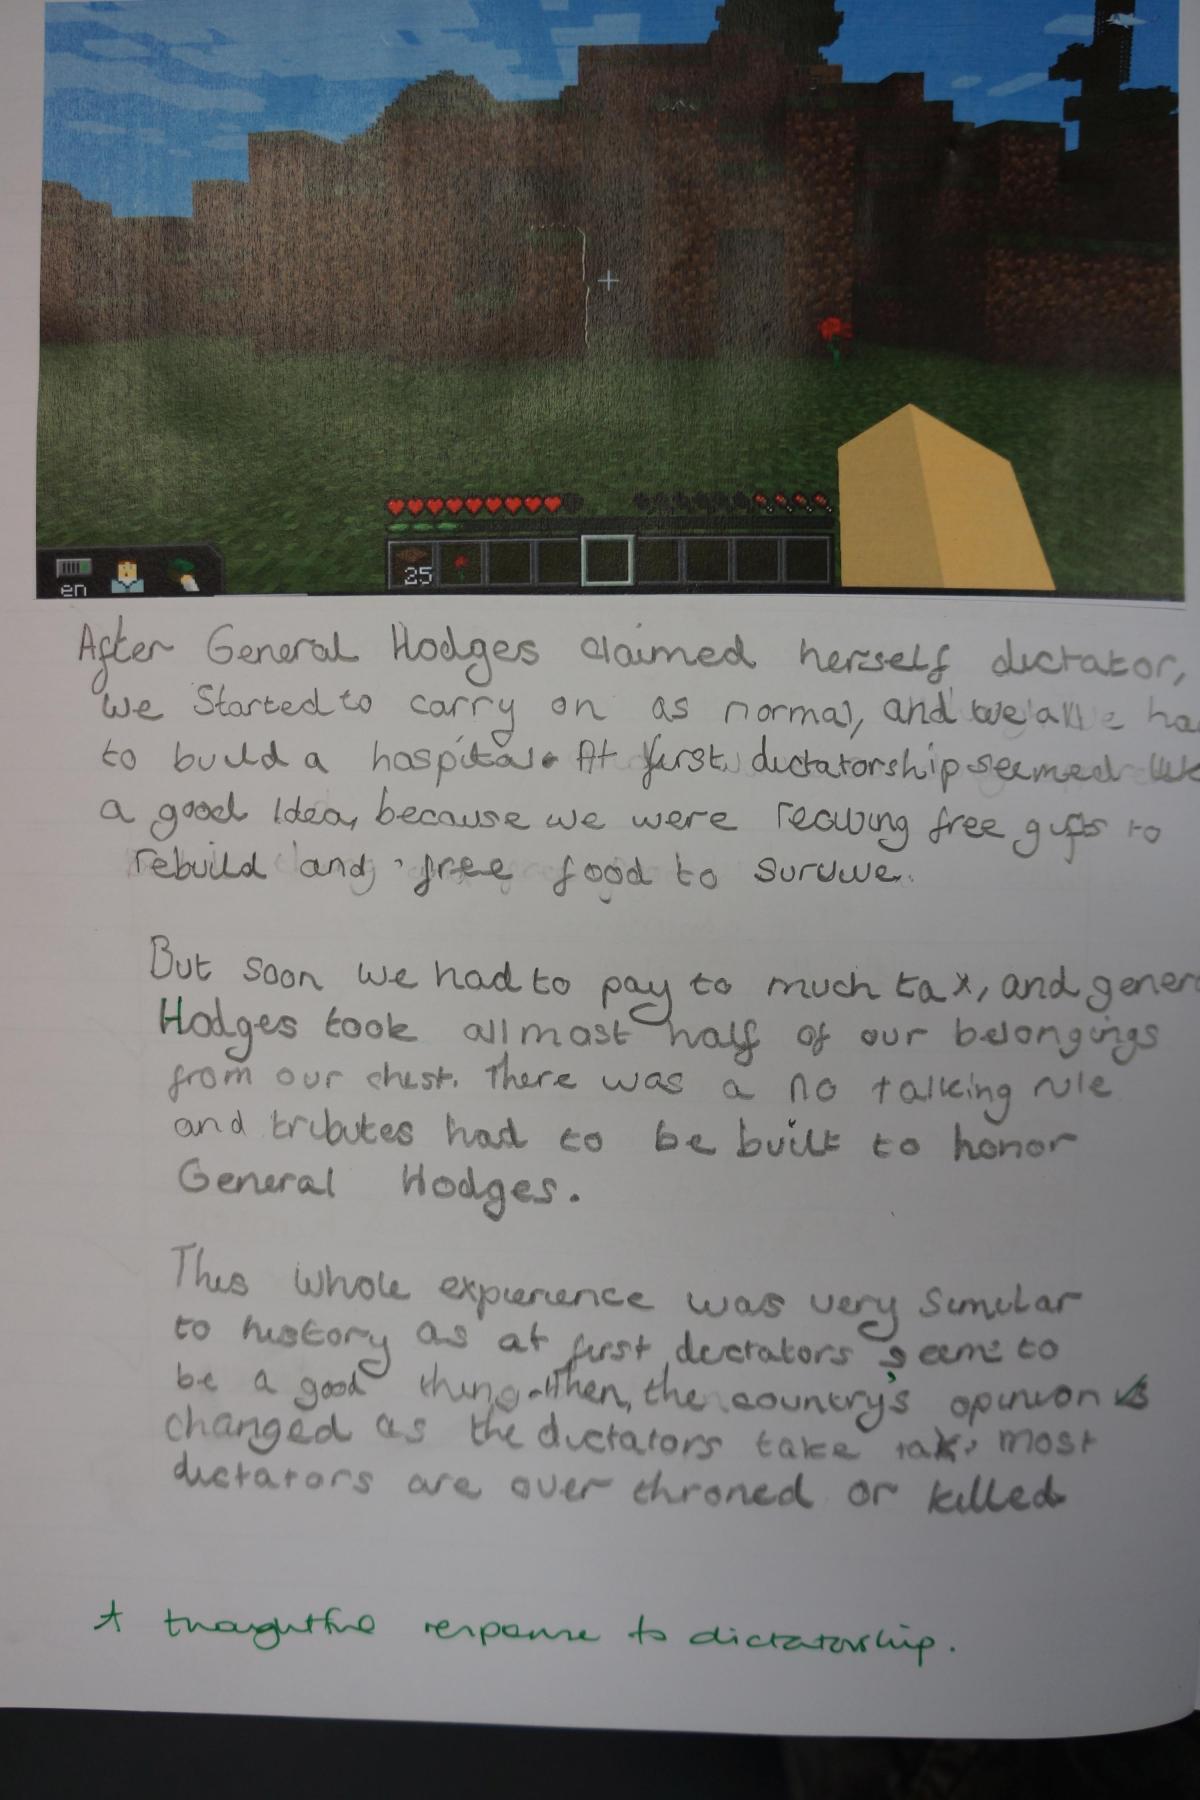 25
en
After General Hodges claimed herself dictator,
we started to carry on as normal, and we all ha
to build a hospital. At first, dictatorship seemed like
a good Idea, because we were reciving free gifts to
rebuild and free food to survive.
But soon we had to pay to much tax, and gener
Hodges took allmost half of our belongings
from our chest. There was a no talking rule
and tributes had to be built to honor
General Hodges.
This whole experience was very similar
to history as at first dictators seem to
be a good thing. Then, the country's opinion is
changed as the dictators take tax. Most
dictators are over throned or killed.
A thoughtful response to dictatorship.